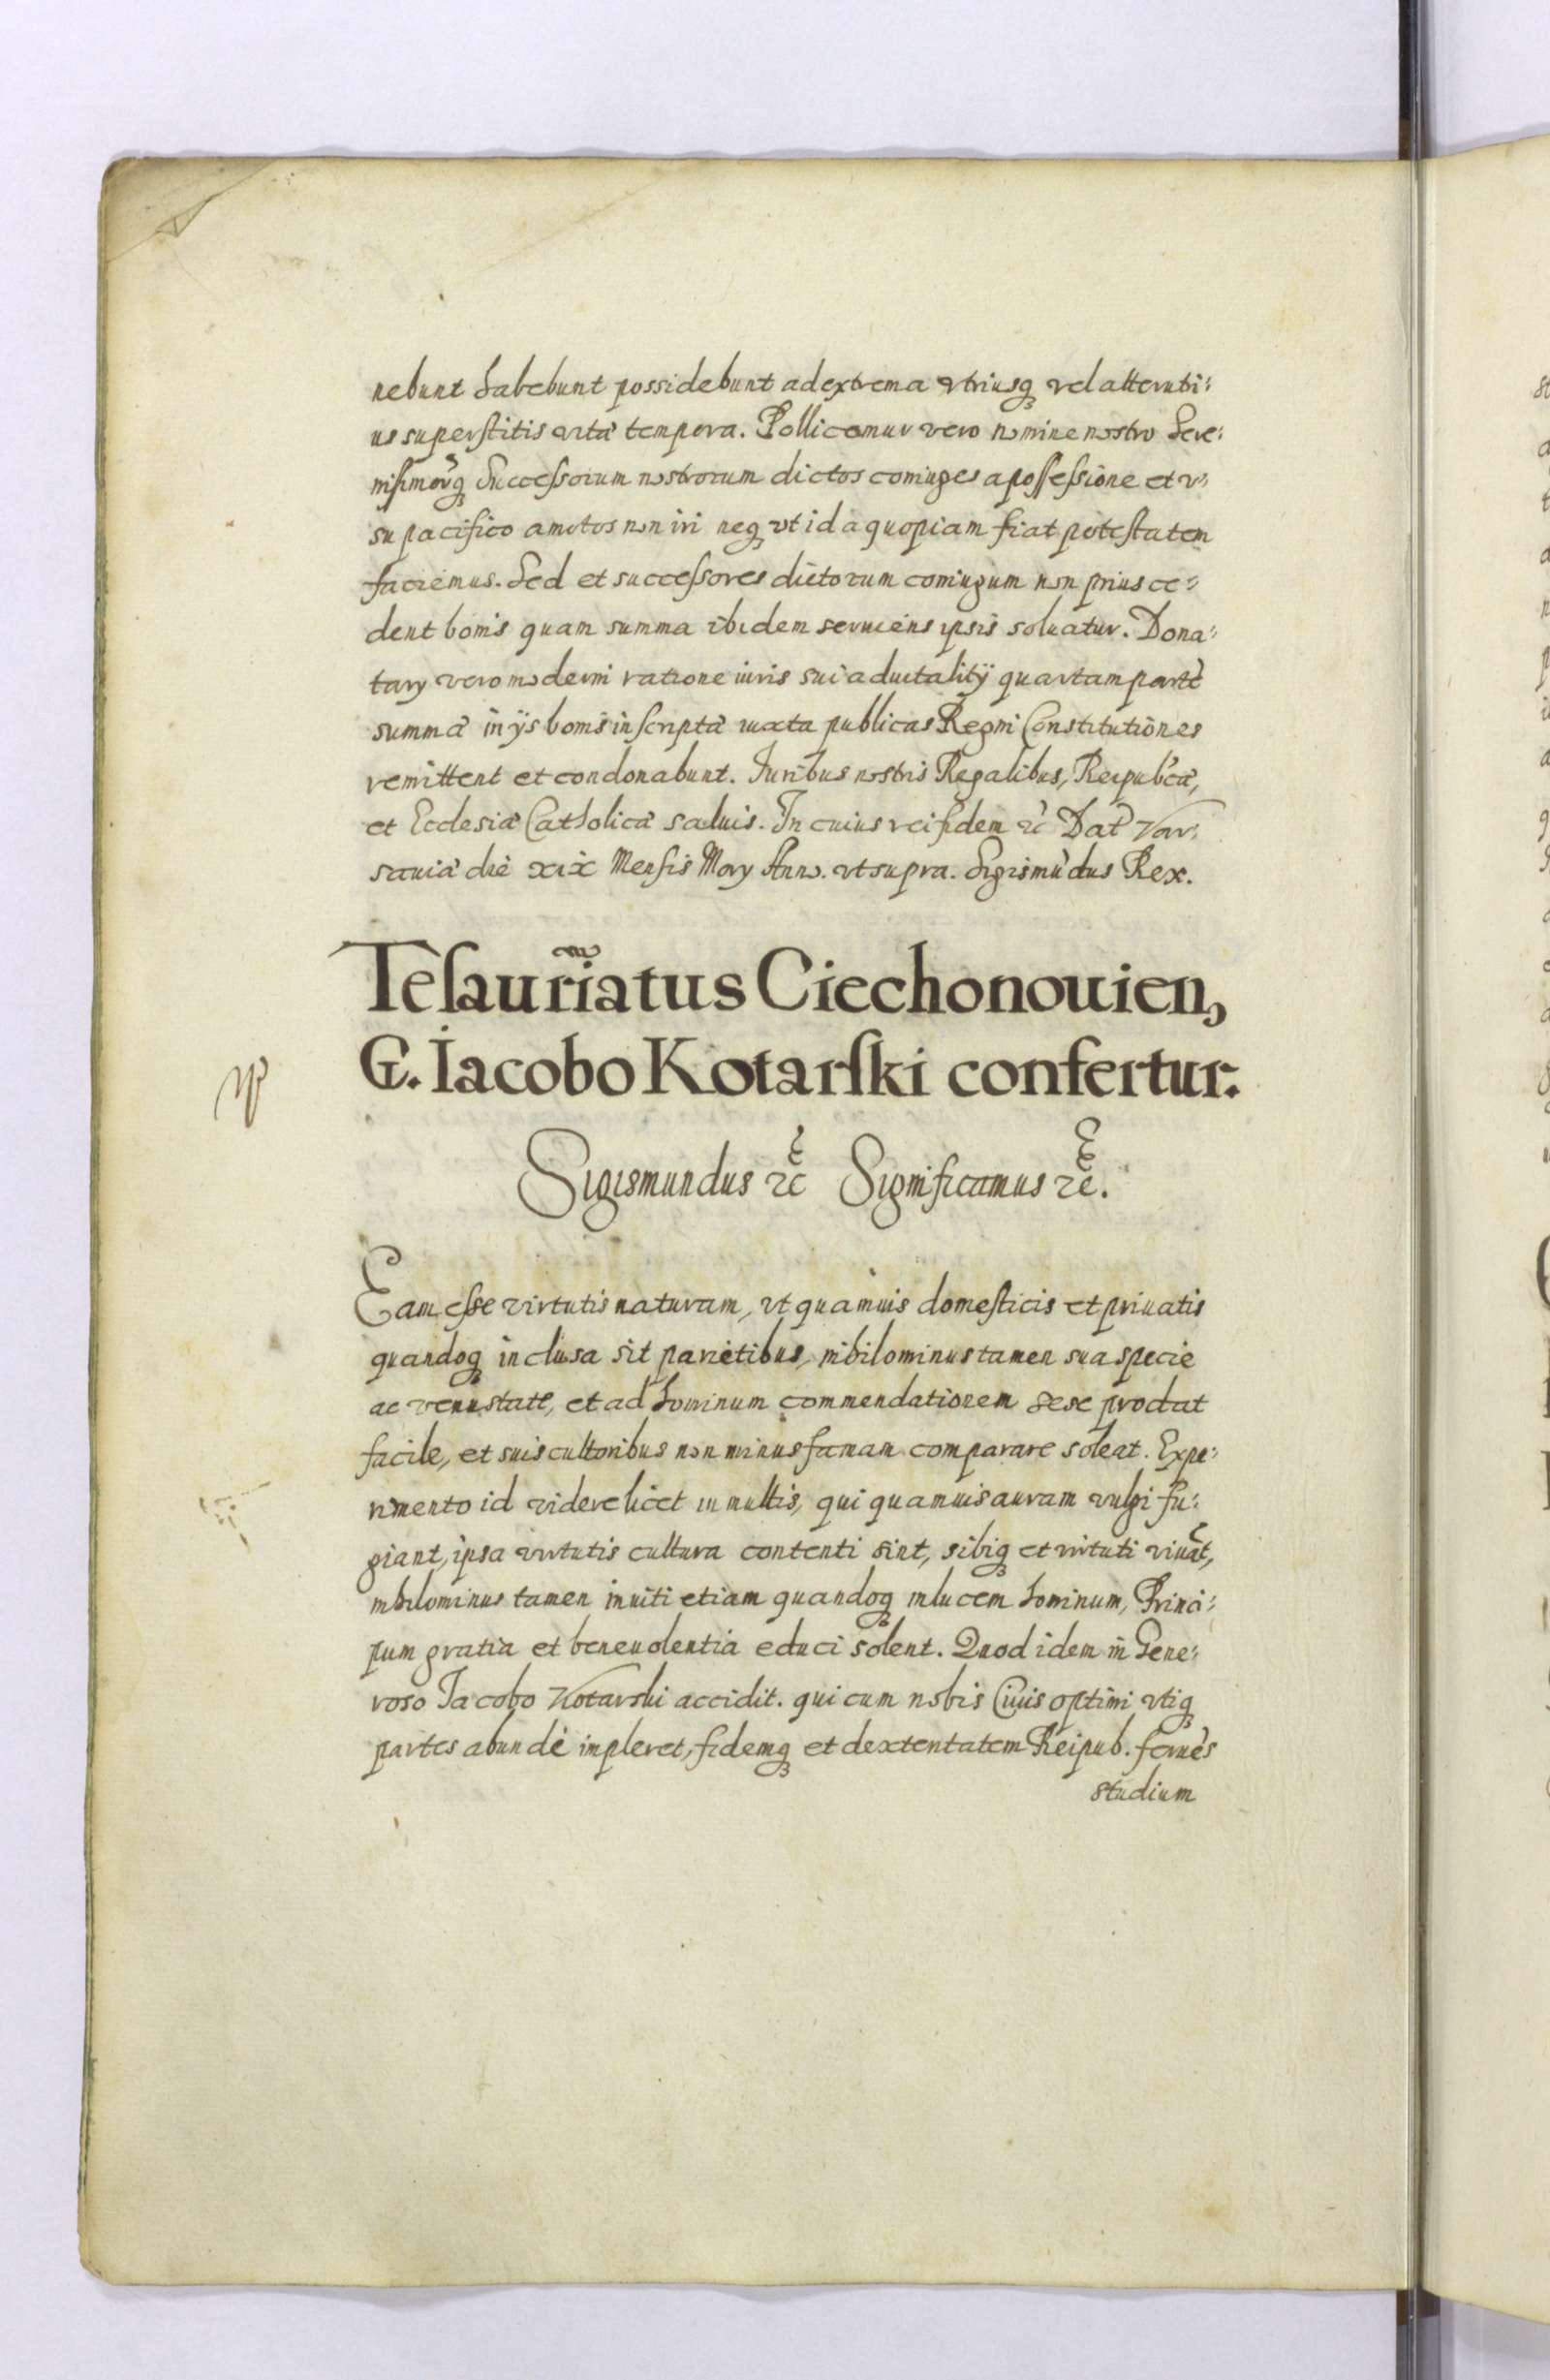 nebunt habebunt possidebunt ad extrema vtriusq vel alterutri:
us superstitis vitæ tempora. Pollicemur vero nomine nostro Sere:
nissimorq Successorum nostrorum dictos coniuges a possessione et v:
su pacifico amotos non iri neq vt id a quopiam fiat potestatem
faciemus. Sed et successores dictorum coniugum non prius ce:
dent bonis quam summa ibidem seruiens ipsis soluatur. Dona:
tarÿ vero moderni ratione iuris sui aduitalitÿ quartam partẽ
summæ in ÿs bonis inscriptæ iuxta publicas Regni Constitutiones
remittent et condonabunt. Iuribus nostris Regalibus, Reipub'cæ,
et Ecclesiæ Catholicæ saluis. In cuius rei fidem ꝛc̃ Dat̃ Var:
sauiæ die xix Mensis Maÿ Anno. vt supra. Sigismũdus Rex.
Tesaurr̃iatus Ciechonouien,
G. Iacobo Kotarski confertur.
Sigismundus ꝛc̃ Significamus ꝛc̃.
Eam esse virtutis naturam, vt quamuis domesticis et priuatis
quandoq inclusa sit parietibus, nihilominus tamen sua specie
ac venustate, et ad hominum commendationem sese prodat
facile, et suis cultoribus non minus famam comparare soleat. Expe:
rimento id videre licet in multis, qui quamuis auram vulgi fu:
giant, ipsa virtutis cultura contenti sint, sibiq et virtuti viuãt,
nihilominus tamen inuiti etiam quandoq in lucem hominum, Princi:
pum gratia et beneuolentia educi solent. Quod idem in Gene:
roso Iacobo Kotarski accidit. qui cum nobis Ciuis optimi vtiq
partes abundè impleret, fidemq et dexteritatem Reipub. feruẽs
studium